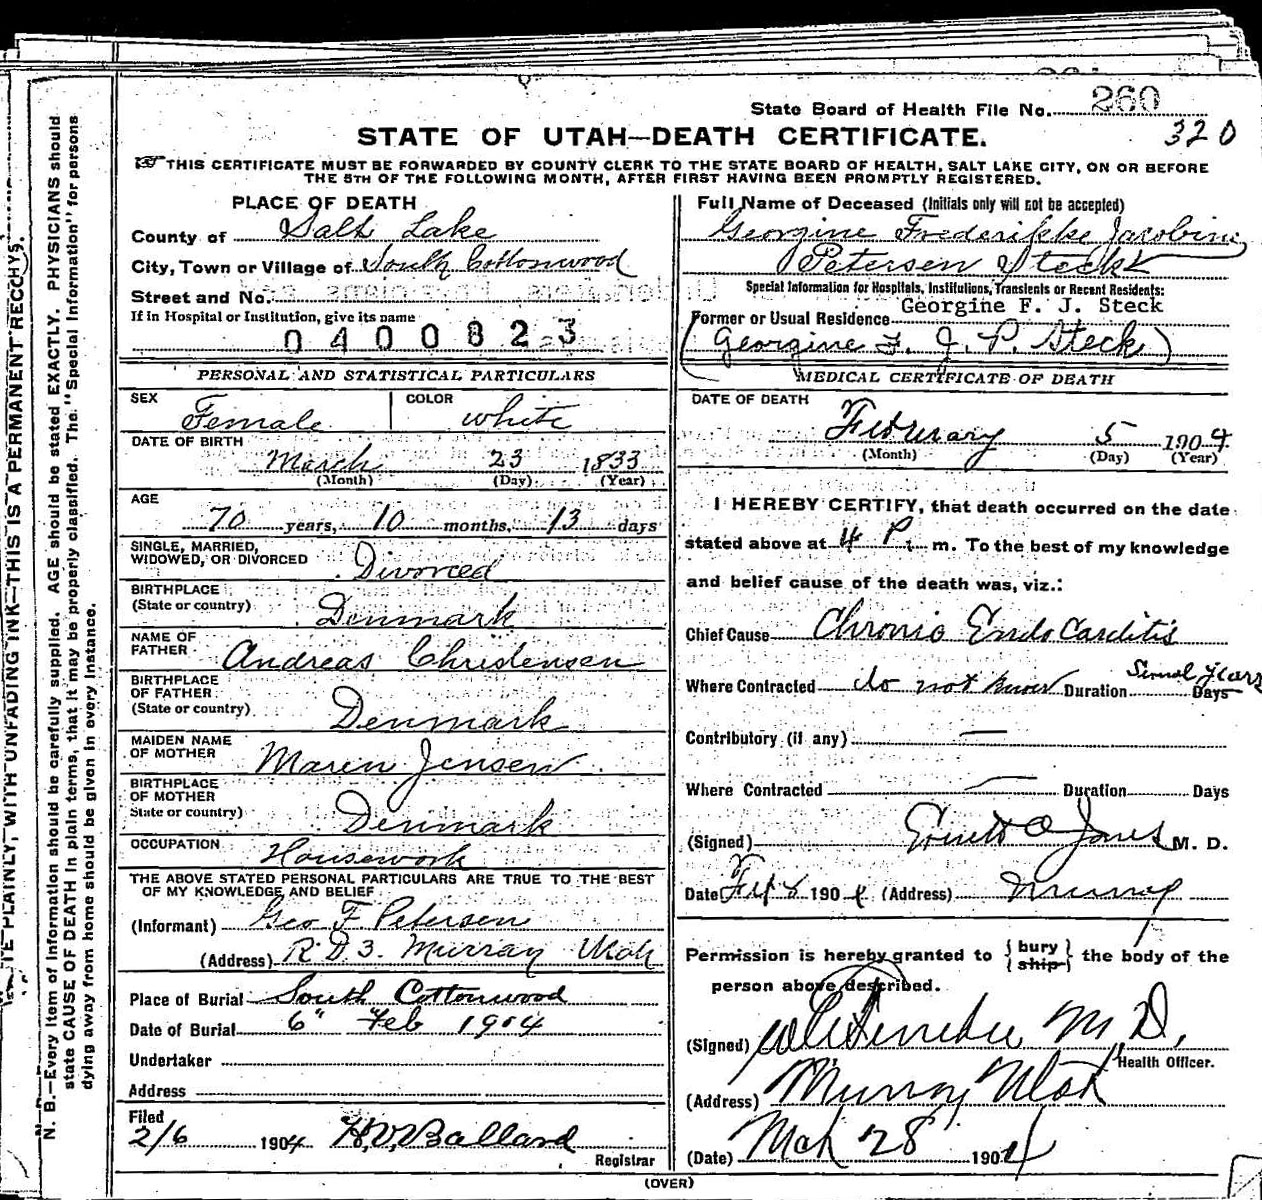 State Board of Health File No. 260
320
STATE OF UTAH—DEATH CERTIFICATE.
THIS CERTIFICATE MUST BE FORWARDED BY COUNTY CLERK TO THE STATE BOARD OF HEALTH, SALT LAKE CITY, ON OR BEFORE
THE 5TH OF THE FOLLOWING MONTH, AFTER FIRST HAVING BEEN PROMPTLY REGISTERED.
PLACE OF DEATH
County of Salt Lake
City, Town or Village of South Cottonwood
Street and No.
If in Hospital or Institution, give its name
0400823
PERSONAL AND STATISTICAL PARTICULARS
SEX Female COLOR white
DATE OF BIRTH
March 23 1833
(Month) (Day) (Year)
AGE
70 years, 10 months, 13 days
SINGLE, MARRIED,
WIDOWED, OR DIVORCED Divorced
BIRTHPLACE
(State or country) Denmark
NAME OF
FATHER Andreas Christensen
BIRTHPLACE
OF FATHER
(State or country) Denmark
MAIDEN NAME
OF MOTHER Maren Jensen
BIRTHPLACE
OF MOTHER
State or country) Denmark
OCCUPATION Housework
THE ABOVE STATED PERSONAL PARTICULARS ARE TRUE TO THE BEST
OF MY KNOWLEDGE AND BELIEF
(Informant) Geo F. Petersen
(Address) R.D 3. Murray Utah
Place of Burial South Cottonwood
Date of Burial 6" Feb 1904
Undertaker
Address
Filed
2/6 1904 H.V. Ballard
Registrar
Full Name of Deceased (Initials only will not be accepted)
Georgine Frederikke Jacobine
Petersen Steck
Special Information for Hospitals, Institutions, Transients or Recent Residents:
Georgine F. J. Steck
Former or Usual Residence
(Georgine F. J. P. Steck)
MEDICAL CERTIFICATE OF DEATH
DATE OF DEATH
February 5 1904
(Month) (Day) (Year)
I HEREBY CERTIFY, that death occurred on the date
stated above at 4 P. m. To the best of my knowledge
and belief cause of the death was, viz.:
Chief Cause Chronic Endocarditis
Where Contracted do not know Duration Several years Days
Contributory (if any) —
Where Contracted — Duration Days
(Signed) O Jones M. D.
Date 1904 (Address) Murray
Permission is hereby granted to { bury ship } the body of the
person above described.
(Signed) M.D.
Health Officer.
(Address) Murray Utah
(Date) Mch 28 1904
(OVER)
N. B.—Every item of information should be carefully supplied. AGE should be stated EXACTLY. PHYSICIANS should
state CAUSE OF DEATH in plain terms, that it may be properly classified. The "Special Information" for persons
dying away from home should be given in every instance.
PLAINLY, WITH UNFADING INK—THIS IS A PERMANENT RECORD.